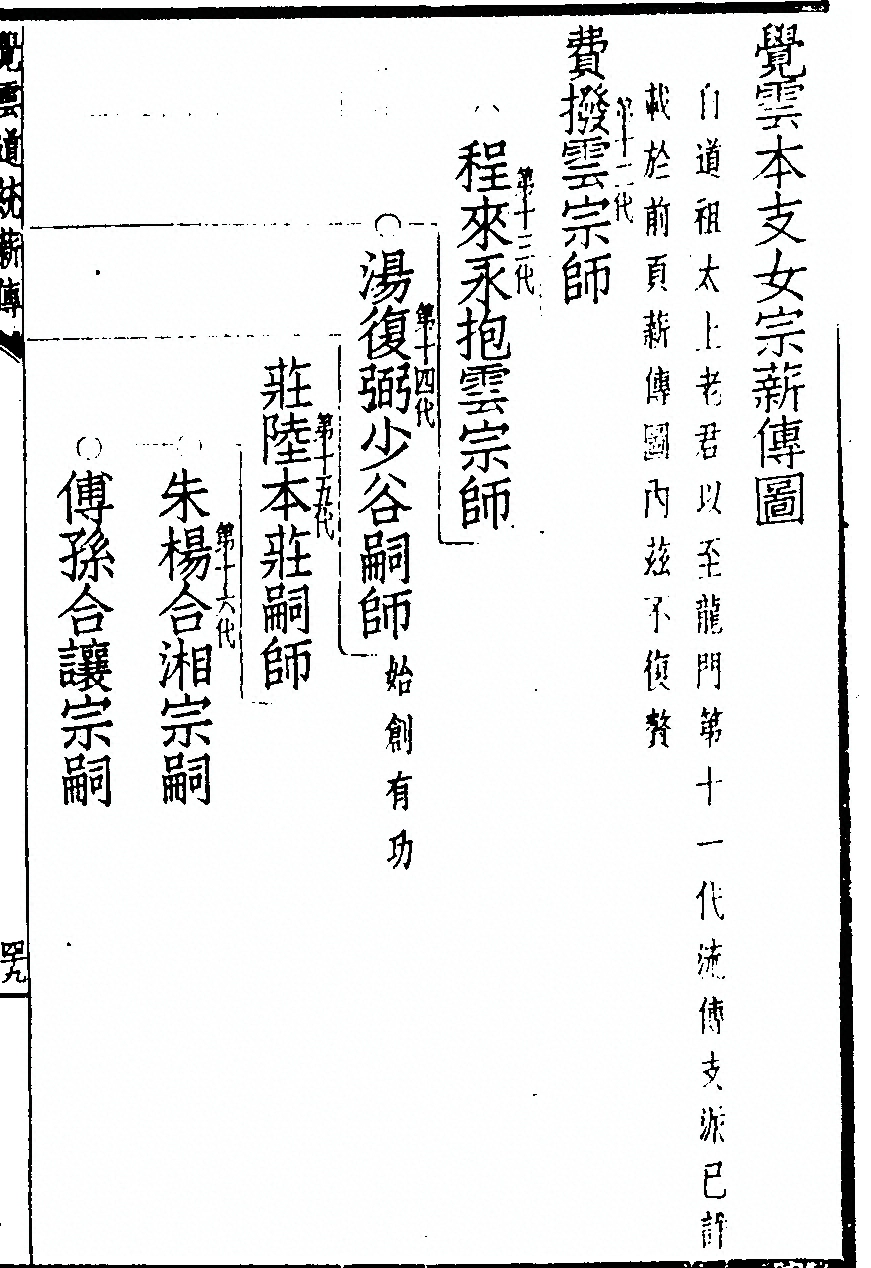 覺雲本支女宗薪傳圖
自道祖太上老君以至龍門第十一代流傳支派已詳
載於前頁薪傳圖內茲不復贅
第十二代
費撥雲宗師
第十三代
程來永抱雲宗師
第十四代
湯復弼少谷嗣師始創有功
第十五代
莊陸本莊嗣師
第十六代
朱楊合湘宗嗣
傅孫合讓宗嗣
覺雲道統薪傳
四十九